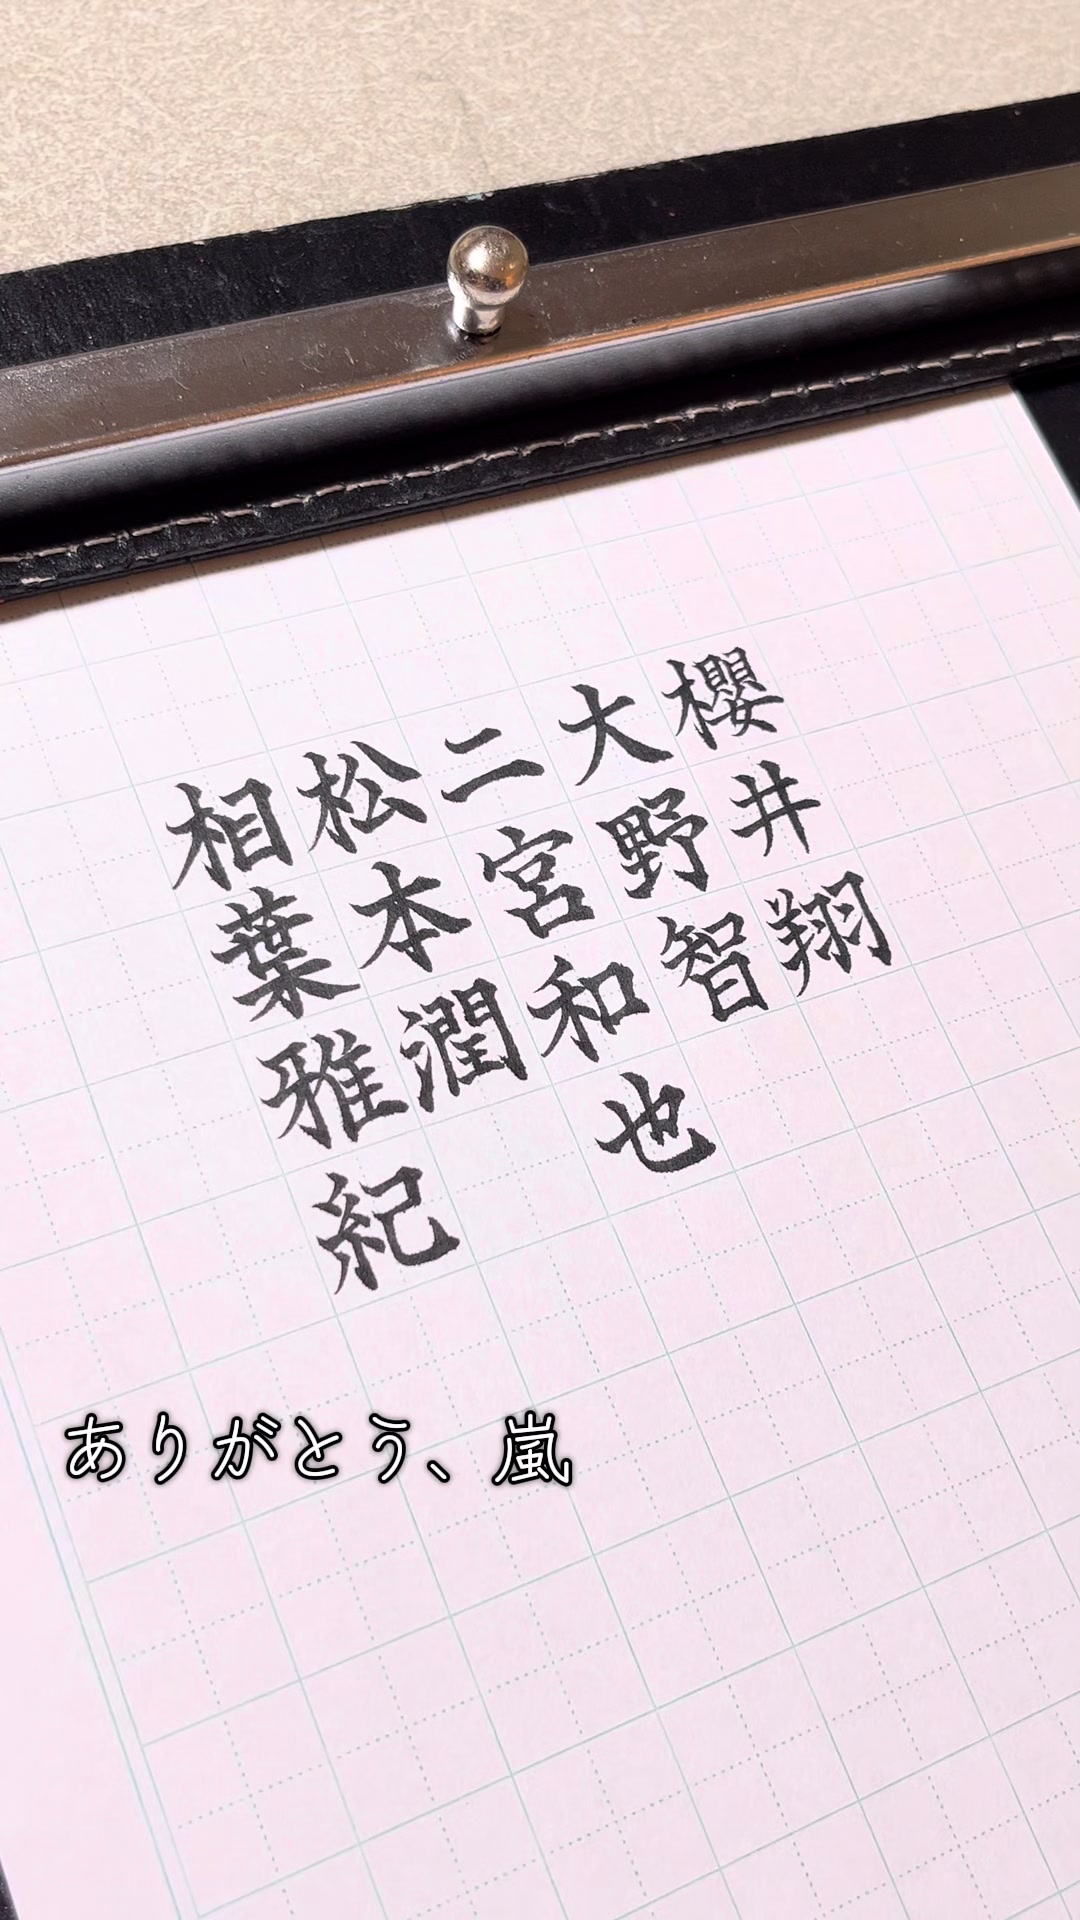 櫻井翔
大野智
二宮和也
松本潤
相葉雅紀
ありがとう、嵐